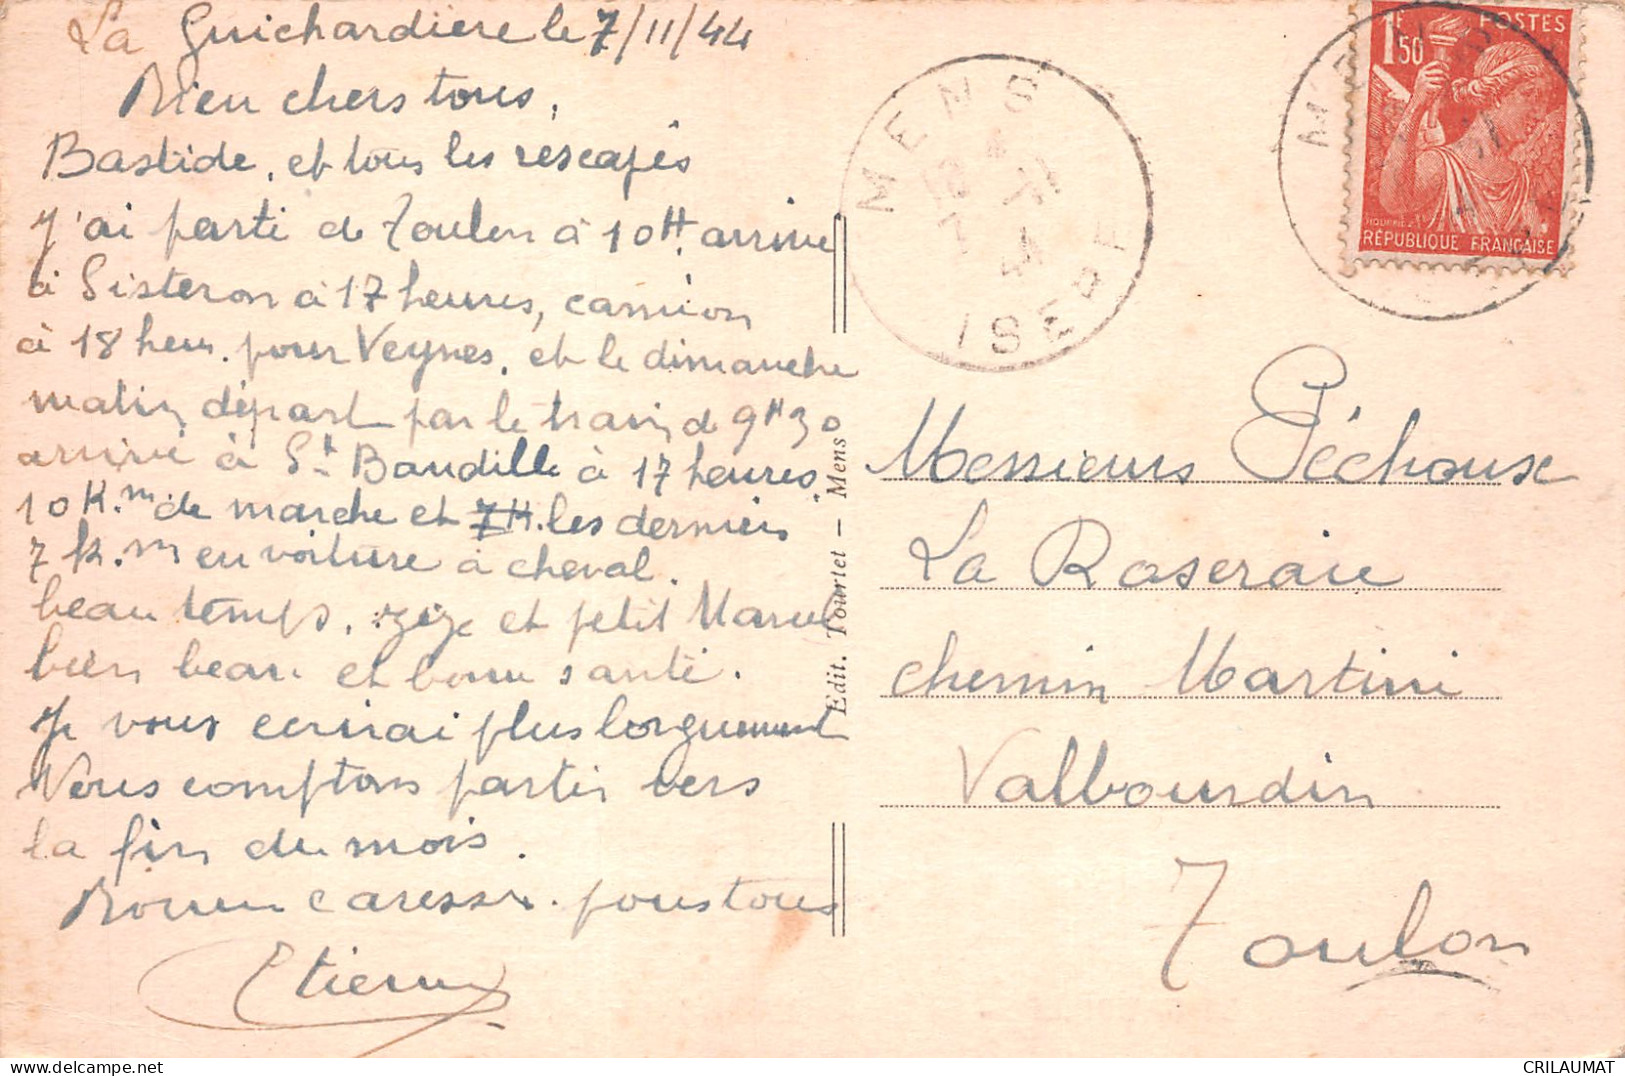 La Guichardière le 7/11/44
Bien chers tous,
Bastide, et tous les rescapés
J'ai parti de Toulon à 10H. arrivé
à Sisteron à 17 heures, camion
à 18 heu. pour Veynes, et le dimanche
matin départ par le train de 9H30
arrivé à St Baudille à 17 heures.
10 K.m de marche et 7H. les derniers
7 k.m en voiture à cheval.
beau temps. Zize et petit Marcel
bien beau et bonne santé.
Je vous ecrirai plus longuement
Nous comptons partir vers
la fin du mois.
caresse. pous tous
Etienne
Edit. Tourtet – Mens
MENS
ISERE
1F50 POSTES
RÉPUBLIQUE FRANÇAISE
Messieurs Péchouse
La Roseraie
chemin Martini
Valbourdin
Toulon
CRILAUMAT